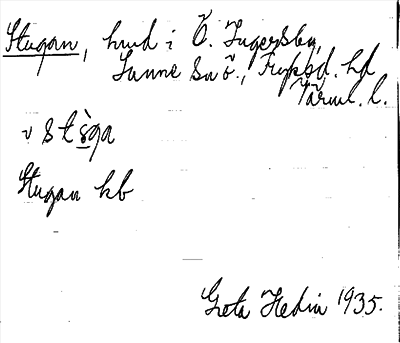 Stugan, hmd i Ö. Ingersby,
Sunne sn ö., Fryksd. hd
Värml. l.
v stὲ̣ga
Stugan kb
Greta Hedin 1935.